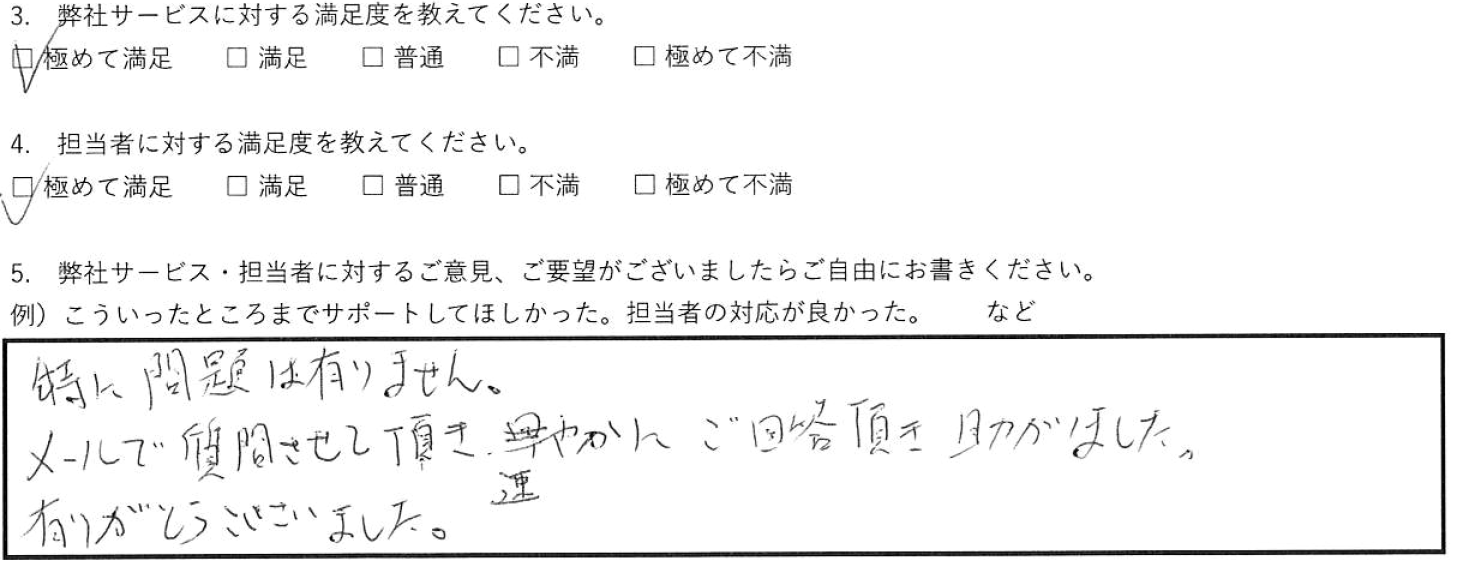 3. 弊社サービスに対する満足度を教えてください。
☑極めて満足 □ 満足 □ 普通 □ 不満 □ 極めて不満
4. 担当者に対する満足度を教えてください。
☑極めて満足 □ 満足 □ 普通 □ 不満 □ 極めて不満
5. 弊社サービス・担当者に対するご意見、ご要望がございましたらご自由にお書きください。
例）こういったところまでサポートしてほしかった。担当者の対応が良かった。 など
特に問題は有りません。
メールで質問させて頂き、速やかにご回答頂き助かりました。
有りがとうございました。